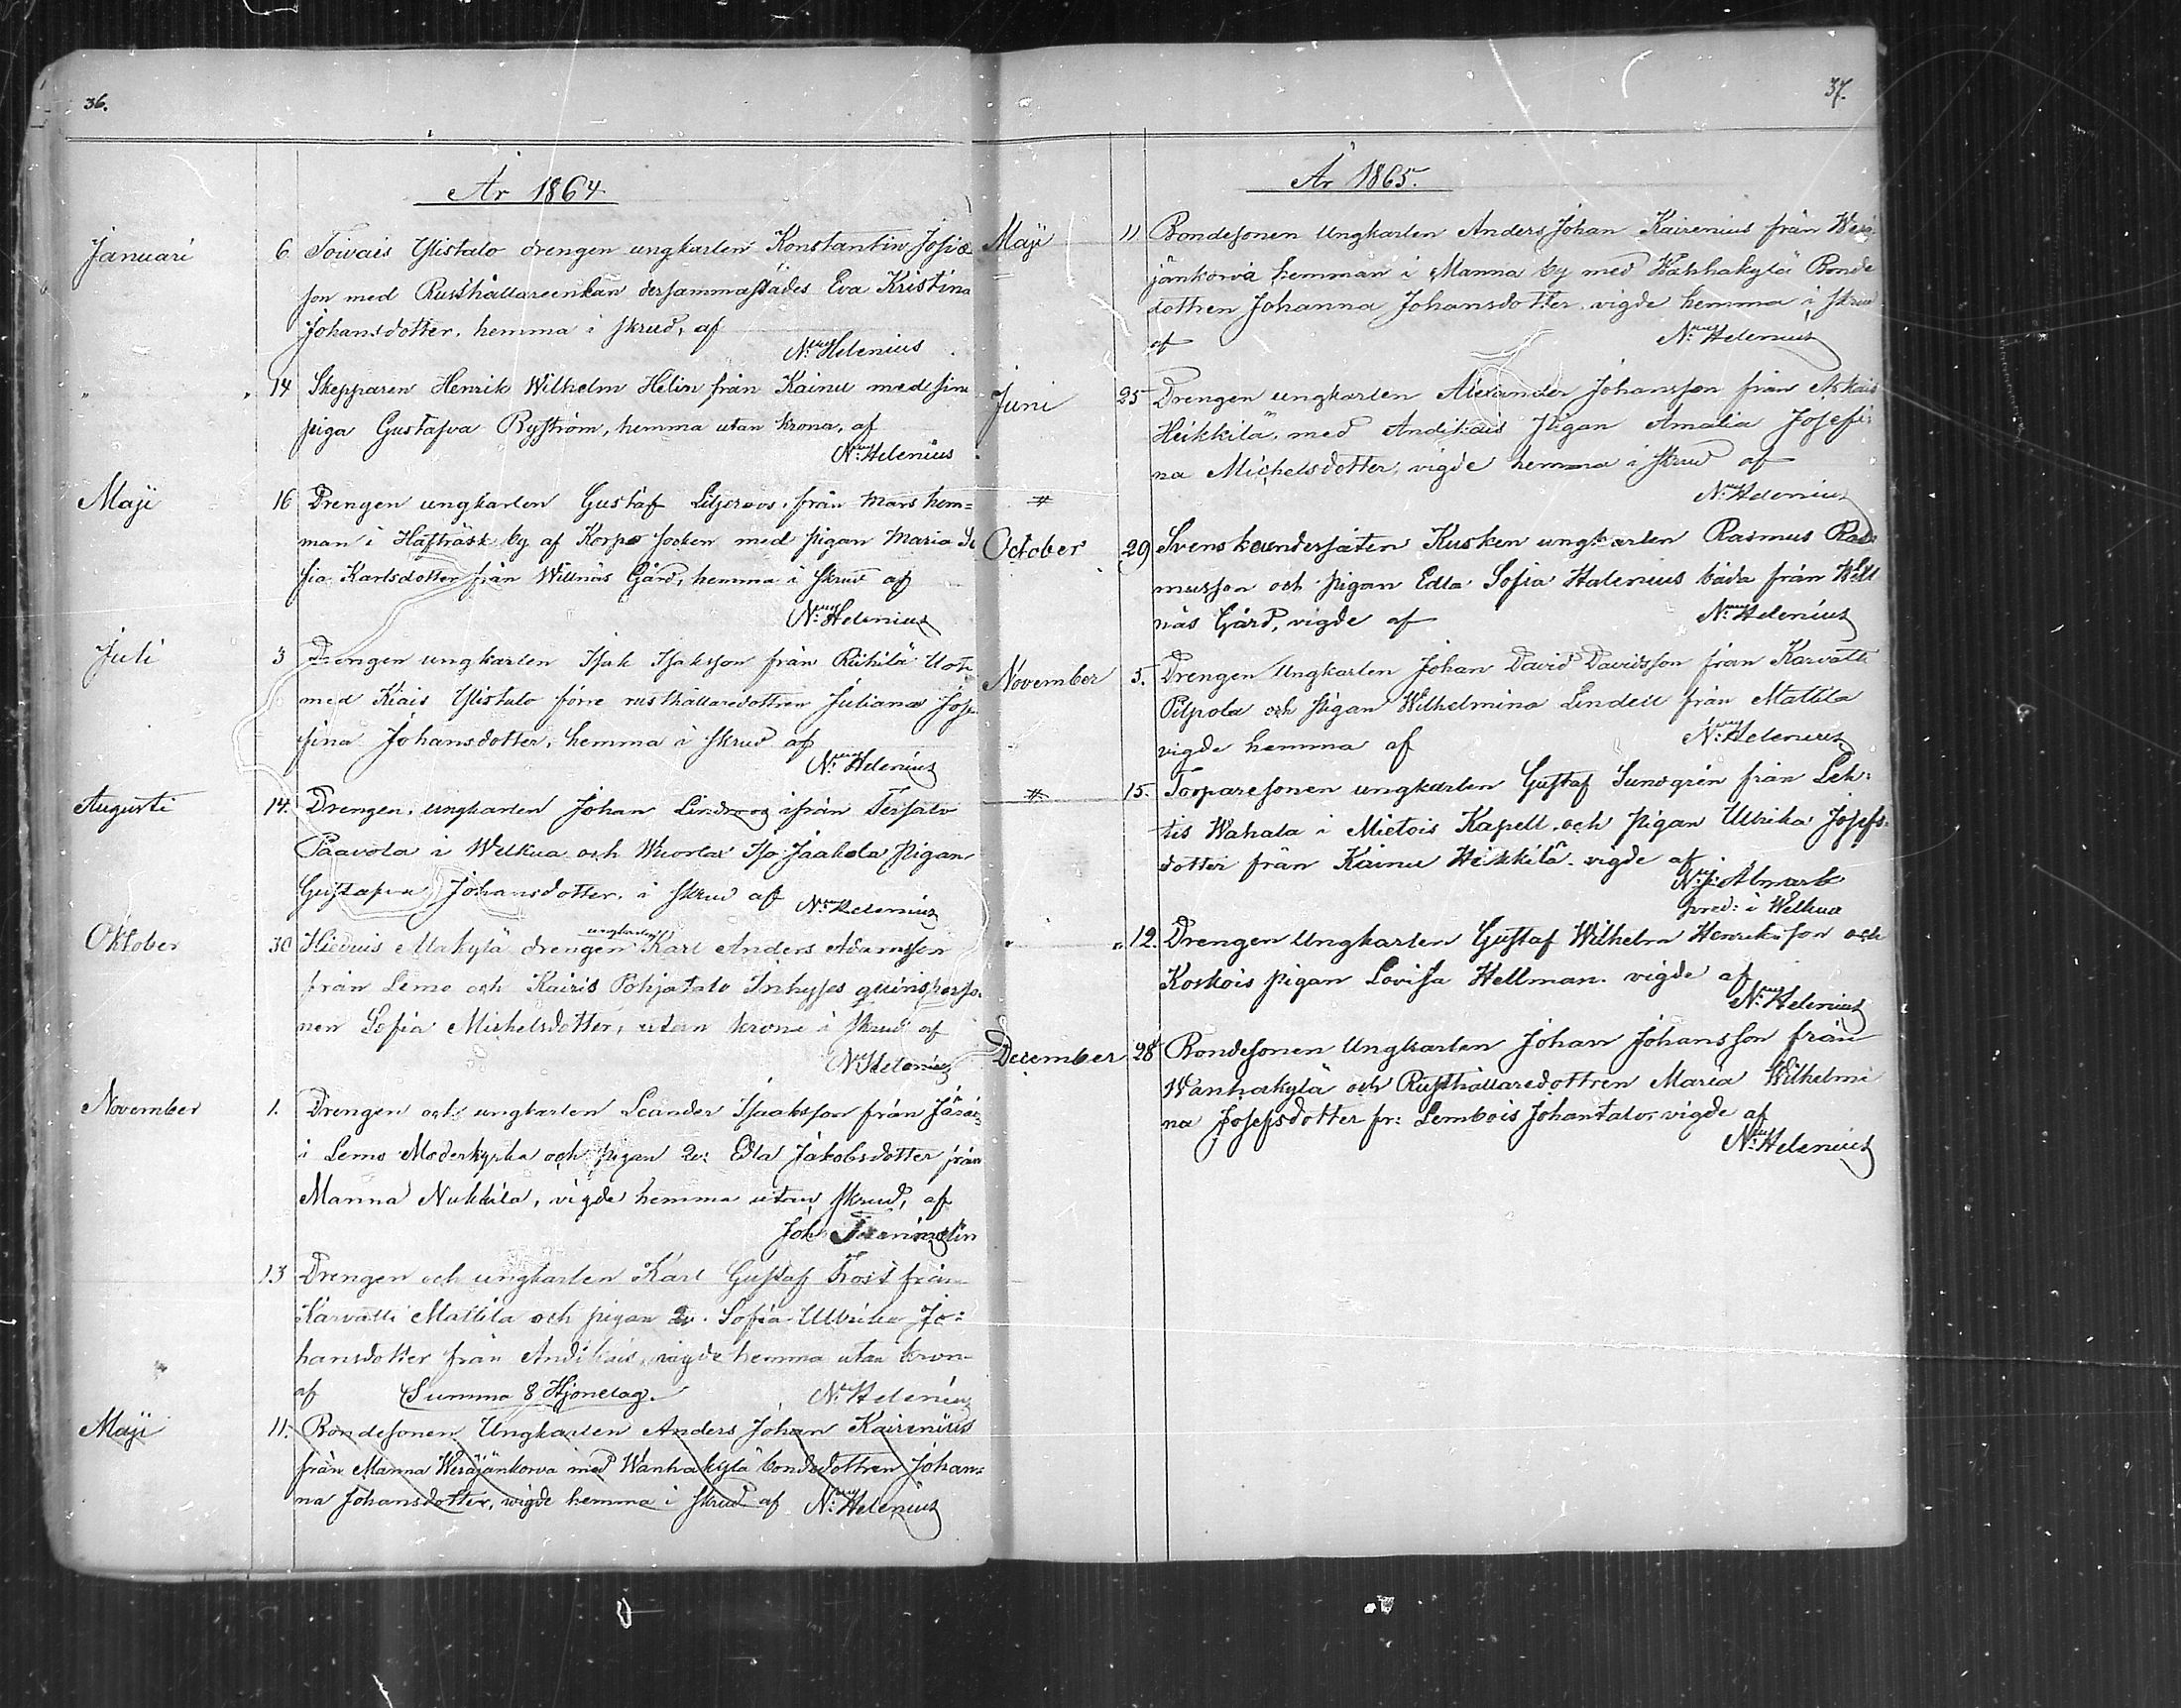 36.
År 1864
Januari 6 Toivais Ylistalo drengen ungkarlen Konstantin Josia
son med Rusthållareenkan dersammastädes Eva Kristina
Johansdotter, hemma i skrud, af
N. Helenius
" " 14 Skepparen Henrik Wilhelm Helin från Kainu med sin
piga Gustafva Ryström, hemma utan krona, af
N. Helenius
Maji 16 Drengen ungkarlen Gustaf Liljeroos, från Mars hem=
man i Hafträsk by af Korpo socken med pigan Maria So
fia Karlsdotter från Willnäs Gård, hemma i skrud af
N. Helenius
Juli 3 Drengen ungkarlen Isak Isaksson från Riihilä
med Kiais Ylistalo förre rusthållaredottren Juliana Jose
fina Johansdotter, hemma i skrud af
N. Helenius
Augusti 14. Drengen, ungkarlen Johan Lindroos ifrån Tersalo
Paavola i Welkua och Wuorlax Iso Jaakola pigan
Gustafva Johansdotter, i skrud af N. Helenius
ungkarlen
Oktober 30 Alakylä drengen Karl Anders Adamsson
från Lemo och Kairis Pohjatalo Inhyses qvinsperso
nen Sofia Michelsdotter, utan krona i skrud af
N. Helenius
November 1. Drengen och ungkarlen Leander Isaaksson från
i Lemo Moderkyrka och pigan Edla Jakobsdotter från
Manna Nukkila, vigde hemma utan skrud, af
Joh
13 Drengen och ungkarlen Karl Gustaf Frost från
Karvatti Mattila och pigan Sofia Ulrika Jo=
hansdotter från Andikais, vigde hemma utan kron
af Summa 8 Hjonelag. N. Helenius
Maji 11. Bondesonen Ungkarlen Anders Johan Kairenius
från Manna Weräjänkorva med Wanhakylä bondedottren Johan=
na Johansdotter, vigde hemma i skrud af N. Helenius
37.
År 1865.
Maji 11 Bondesonen Ungkarlen Anders Johan Kairenius från Werä
jänkorva hemman i Manna by med Wanhakylä Bonde
dottren Johanna Johansdotter, vigde hemma i skrud
af N. Helenius
Juni 25 Drengen ungkarlen Alexander Johansson från Askais
Heikkilä, med Andikais Pigan Amalia Josefi=
na Michelsdotter, vigde hemma i skrud af
N. Helenius
October 29 Svenska undersåten Kusken ungkarlen Rasmus Ras
musson och pigan Edla Sofia Halenius båda från Will
näs Gård, vigde af N. Helenius
November 5. Drengen Ungkarlen Johan David Davidsson från Karvatti
Pilpola och Pigan Wilhelmina Lindell från Mattila
vigde hemma af N. Helenius
15. Torparesonen ungkarlen Gustaf Sundgrén från Leh=
tis Wahala i Mietois Kapell, och pigan Ulrika Josefs=
dotter från Kainu Heikkilä. vigde af
N. J. Almark
pred: i Welkua
" " 12. Drengen Ungkarlen Gustaf Wilhelm Henriksson och
Koskois pigan Lovisa Hellman. vigde af
N. Helenius
December 28 Bondesonen Ungkarlen Johan Johansson från
Wanhakylä och Rusthållaredottren Maria Wilhelmi
na Josefsdotter fr: Lembois Johantalo, vigde af
N. Helenius